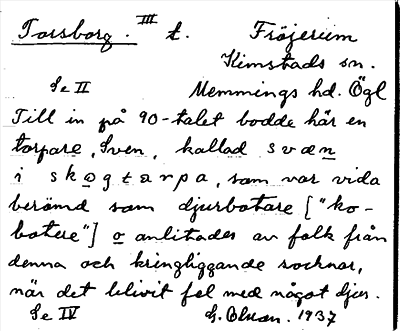 Torsborg. III t. Fröjerum
Kimstads sn.
Se II Memmings hd. Ögl
Till in på 90-talet bodde här en
torpare, Sven, kallad svæn
i skogtarpa, som var vida
berömd som djurbotare ["ko-
botere"] o anlitades av folk från
denna och kringliggande socknar,
när det blivit fel med något djur.
Se IV G. Olson. 1937